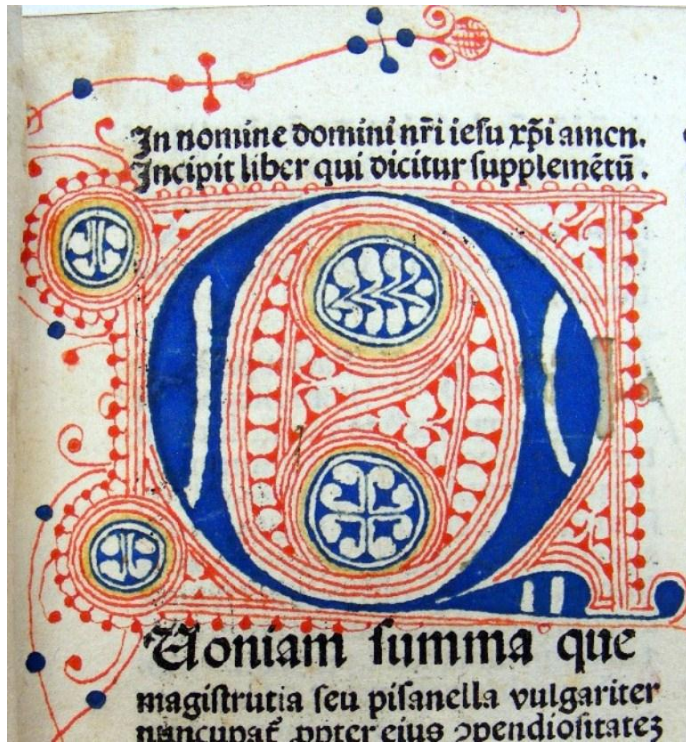 In nomine domini nr̃i iesu xp̃i amen.
Incipit liber qui dicitur supplemẽtũ.
Uoniam summa que
magistrutia seu pisanella vulgariter
nuncupat᷑ ꝓpter eius ↄpendiositateꝫ